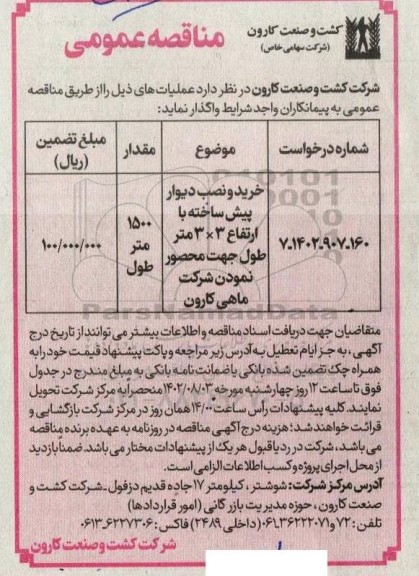 کشت و صنعت کارون
(شرکت سهامی خاص)
مناقصه عمومی
شرکت کشت و صنعت کارون در نظر دارد عملیات های ذیل را از طریق مناقصه
عمومی به پیمانکاران واجد شرایط واگذار نماید:
شماره درخواست
موضوع
مقدار
مبلغ تضمین
(ریال)
۷.۱۴۰۲.۹۰۷.۱۶۰
خرید و نصب دیوار
پیش ساخته با
ارتفاع ۳×۳ متر
طول جهت محصور
نمودن شرکت
ماهی کارون
۱۵۰۰
متر
طول
۱۰۰/۰۰۰/۰۰۰
ParsNamadData
متقاضیان جهت دریافت اسناد مناقصه و اطلاعات بیشتر می توانند از تاریخ درج
آگهی، به جز ایام تعطیل به آدرس زیر مراجعه و پاکت پیشنهاد قیمت خود را به
همراه چک تضمین شده بانکی یا ضمانت نامه بانکی به مبلغ مندرج در جدول
فوق تا ساعت ۱۲ روز چهارشنبه مورخه ۱۴۰۲/۰۸/۰۳ منحصراً به مرکز شرکت تحویل
نمایند. کلیه پیشنهادات رأس ساعت ۱۴/۰۰ همان روز در مرکز شرکت بازگشایی و
قرائت خواهند شد؛ هزینه درج آگهی مناقصه در روزنامه به عهده برنده مناقصه
می باشد، شرکت در رد یا قبول هر یک از پیشنهادات مختار می باشد. ضمناً بازدید
از محل اجرای پروژه و کسب اطلاعات الزامی است.
آدرس مرکز شرکت: شوشتر، کیلومتر ۱۷ جاده قدیم دزفول - شرکت کشت و
صنعت کارون، حوزه مدیریت بازرگانی (امور قراردادها)
تلفن: ۷۲ و ۰۶۱.۳۶۲۲۲۰۷۱ (داخلی ۲۴۸۹) فاکس: ۰۶۱۳.۶۲۲۷۳۰۶
شرکت کشت و صنعت کارون